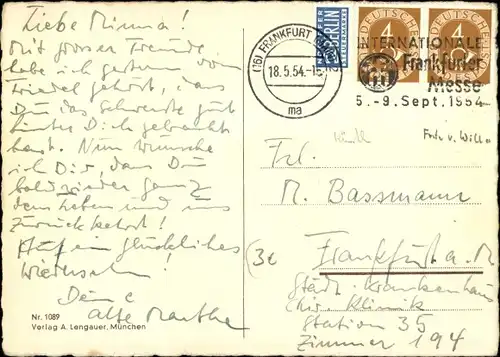 Liebe Minna!
Mit grosser Freude
habe ich gestern von
Friedel gehört, dass
Du das Schwerste gut
hinter Dich gebracht
hast. Nun wünsche
ich Dir, dass Du
bald wieder ganz
dem Leben und uns
zurückkehrst!
Auf ein glückliches
Wiedersehn!
Deine
alte Martha
Nr. 1089
Verlag A. Lengauer, München
(16) FRANKFURT
18.5.54.-18
ma
NOTOPFER
2 BERLIN
STEUERMARKE
DEUTSCHE
4
DEUTSCHE
4
INTERNATIONALE
Frankfurter
Messe
5.-9. Sept. 1954
Frl.
M. Bassmann
Frankfurt a. M
Städt. Krankenhaus
Chir. Klinik
Station 35
Zimmer 194